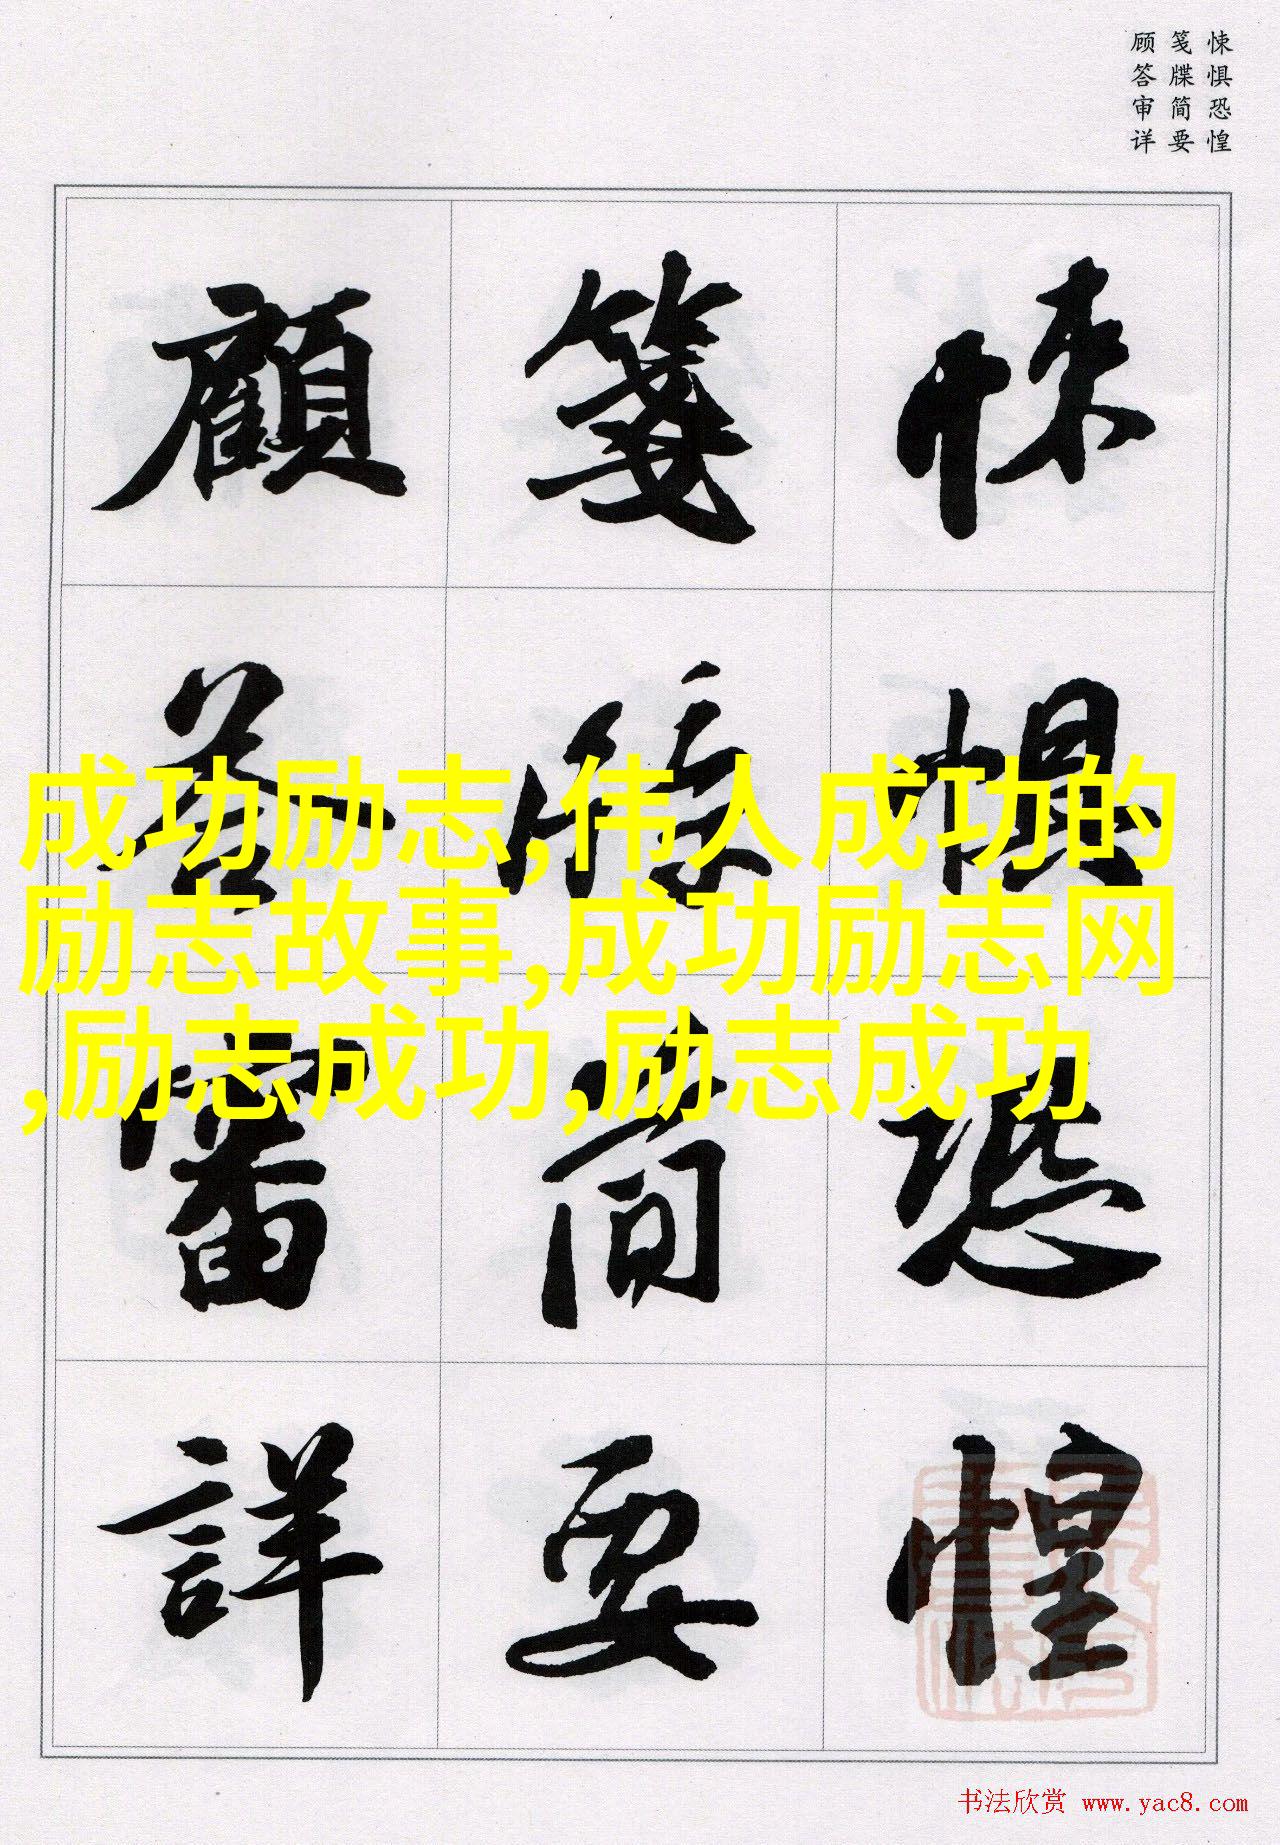 悚惧恐惶
笺牒简要
顾答审详
悚懼恐惶
箋牒簡要
顧答審詳
成功励志,伟人成功的
励志故事,成功励志网
,励志成功,励志成功
书法欣赏 www.yac8.com